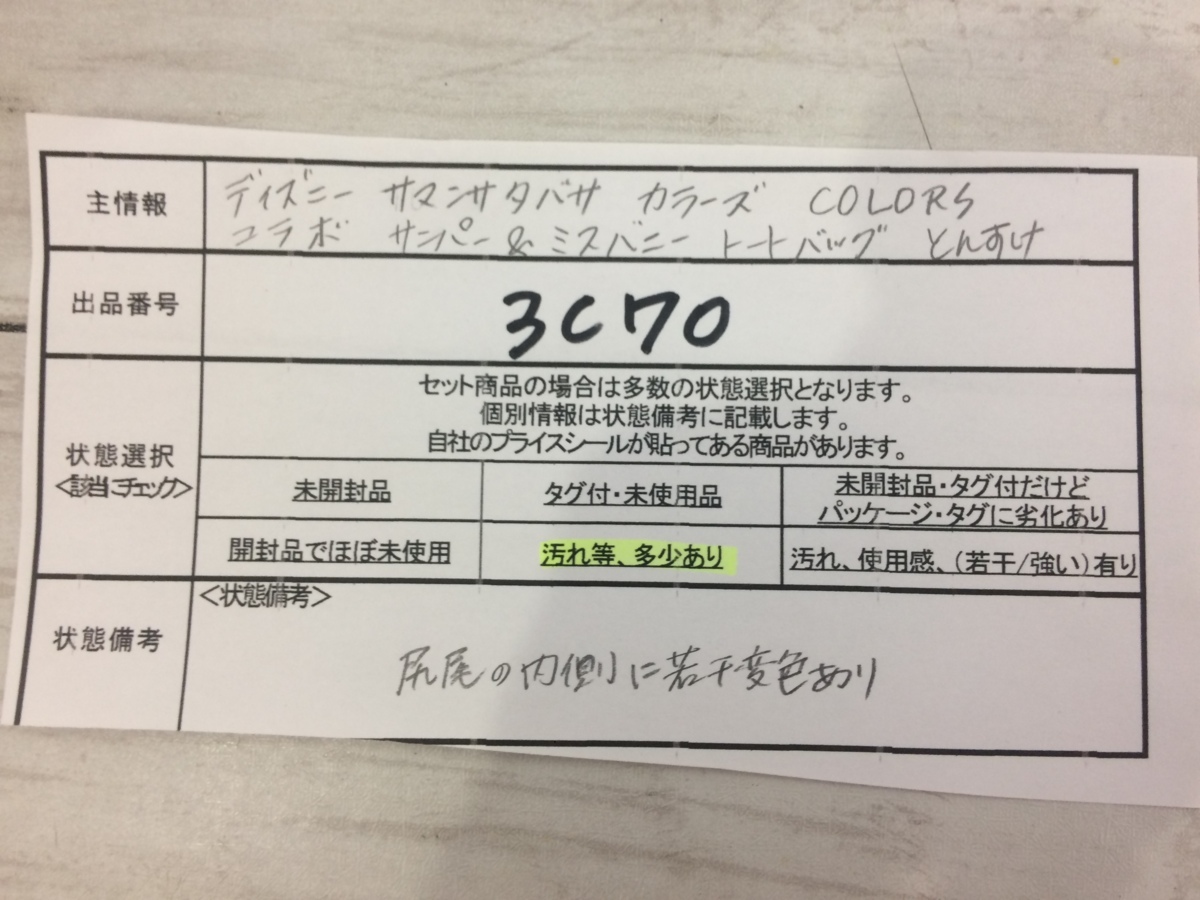 主情報
ディズニー サマンサタバサ カラーズ COLORS
コラボ サンパー&ミスバニー トートバッグ とんすけ
出品番号
3C70
状態選択
<該当にチェック>
セット商品の場合は多数の状態選択となります。
個別情報は状態備考に記載します。
自社のプライスシールが貼ってある商品があります。
未開封品
タグ付・未使用品
未開封品・タグ付だけど
パッケージ・タグに劣化あり
開封品でほぼ未使用
汚れ等、多少あり
汚れ、使用感、(若干/強い)有り
状態備考
<状態備考>
尻尾の内側に若干変色あり